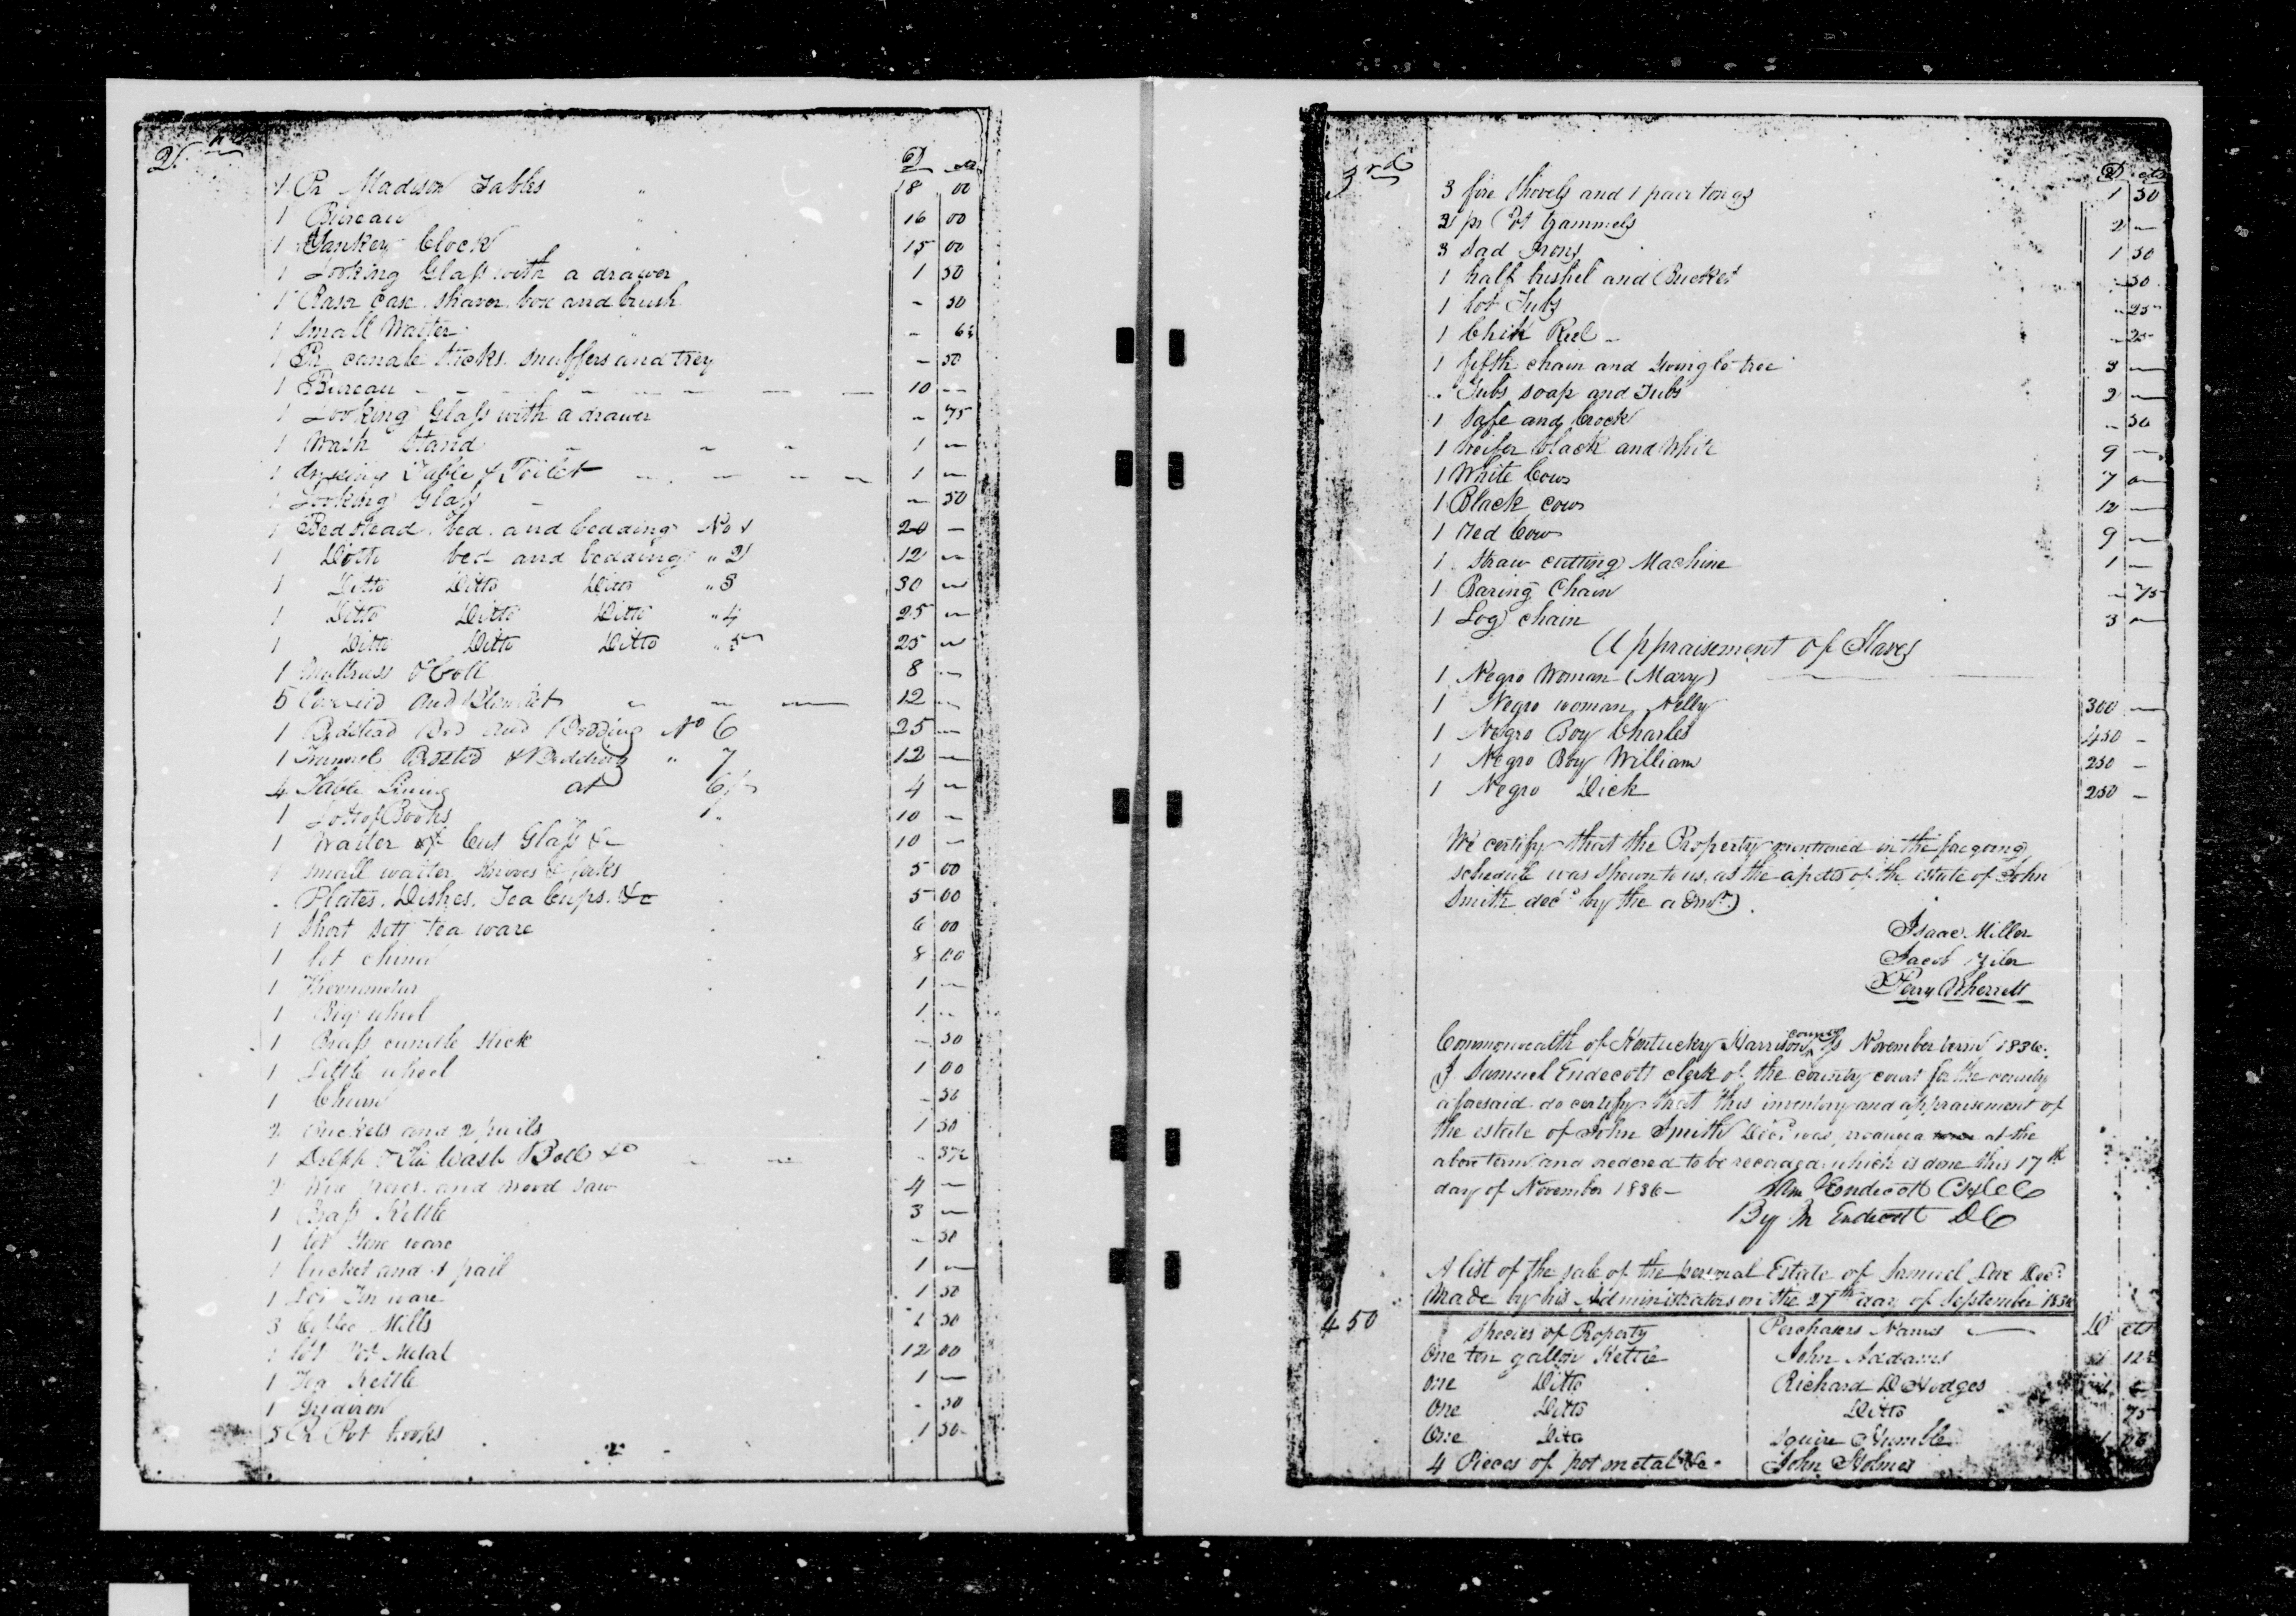 2nd
D cts
1 Pr Madison Tables " 18 00
1 Bureau " 16 00
1 Yankey Clock " 15 00
1 Looking Glass with a drawer 1 50
1 Rasr case. shaver. box and brush - 50
1 Small Waiter " - 6¼
1 Pr candle sticks. snuffers and trey - 50
1 Bureau 10 -
1 Looking Glass with a drawer - 75
1 Wash Stand 1 -
1 dressing Table & Toilet 1 -
1 Looking Glass - 50
1 Bedstead. bed. and bedding No 1 20 -
1 Ditto bed and bedding " 2 12 -
1 Ditto Ditto Ditto " 3 30 -
1 Ditto Ditto Ditto " 4 25 -
1 Ditto Ditto Ditto " 5 25 -
1 Mattress & Cott 8 -
5 Coverlid and Blankets 12 -
1 Bedstead Bed and Bedding No 6 25 -
1 Trunnel Bedsted & Bedding " 7 12 -
4 Table Lining at 6/ 4 -
1 Lott of Books 10 -
1 Waiter of Cut Glass &c 10 -
1 small waiter knives & forks 5 00
. Plates. Dishes. Tea Cups. &c 5 00
1 Short sett tea ware 6 00
1 Set china 8 00
1 Thermometer 1 -
1 Big wheel 1 -
1 Brass candle stick - 50
1 Little wheel 1 00
1 Churn - 50
2 Buckets and 2 pails 1 50
1 Delph & Tin Wash Boll &c - 37½
2 and wood saw 4 -
1 Brass Kettle 3 -
1 lot Stone ware - 50
1 bucket and 1 pail 1 -
1 Lot Tin ware 1 50
3 Coffee Mills 1 50
1 lot Pot Metal 12 00
1 Tea Kettle 1 -
1 Gridiron - 50
5 Pr Pot hooks 1 50
3rd
D cts
3 fire shovels and 1 pair tongs 1 50
2 pr Pot trammels 2 -
3 Sad Irons 1 50
1 half bushel and Bucket - 50
1 lot Tubs - 25
1 Chek Reel - 25
1 fifth chain and swingle tree 3 -
. Tubs soap and Tubs 2 -
1 Safe and Crock - 50
1 heifer black and White 9 -
1 White Cow 7 -
1 Black cow 12 -
1 red Cow 9 -
1 Straw cutting Machine 1 -
1 Baring Chain - 75
1 Log chain 3 -
Appraisement of Slaves
1 Negro Woman (Mary)
1 Negro woman Nelly 300 -
1 Negro Boy Charles 450 -
1 Negro Boy William 250 -
1 Negro Dick 250 -
We certify that the Property mentioned in the foregoing
schedule was shewn to us, as the of the estate of John
Smith decd by the admr.
Isaac Miller
Jacob
Perry Wherrett
Commonwealth of Kentucky Harrison county November term 1836.
I Samuel Endecott clerk of the county court for the county
aforesaid do certify that this inventory and appraisement of
the estate of John Smith Decd was at the
above term and ordered to be recorded which is done this 17th
day of November 1836 - Sam Endecott CHCC
By M Endecott DC
A list of the sale of the personal Estate of Samuel Decd
Made by his Administrators on the 27th day of September 1836
450
Species of Property Perchasers Names D cts
One ten gallon Kettle John Addams 12½
One Ditto Richard D Hodges
One Ditto Ditto 75
One Ditto Squire Humble
4 Pieces of pot metal &c John Holmes